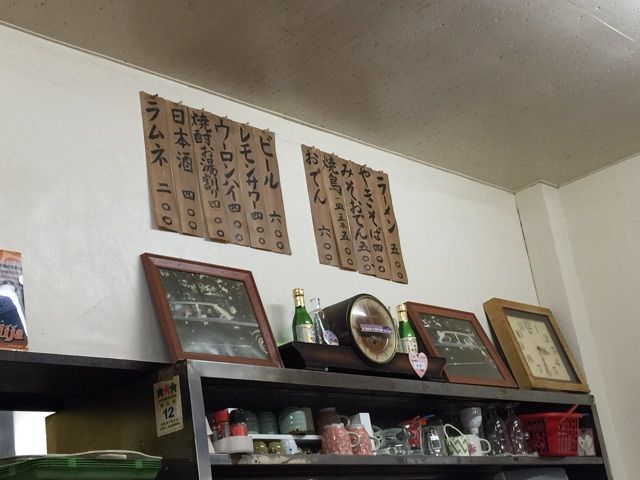 ビール 六〇〇
レモンサワー 四〇〇
ウーロンハイ 四〇〇
焼酎お湯割り 四〇〇
日本酒 四〇〇
ラムネ 二〇〇
ラーメン 五〇〇
やきそば 四〇〇
みそおでん 五〇〇
焼鳥
おでん 六〇〇
12